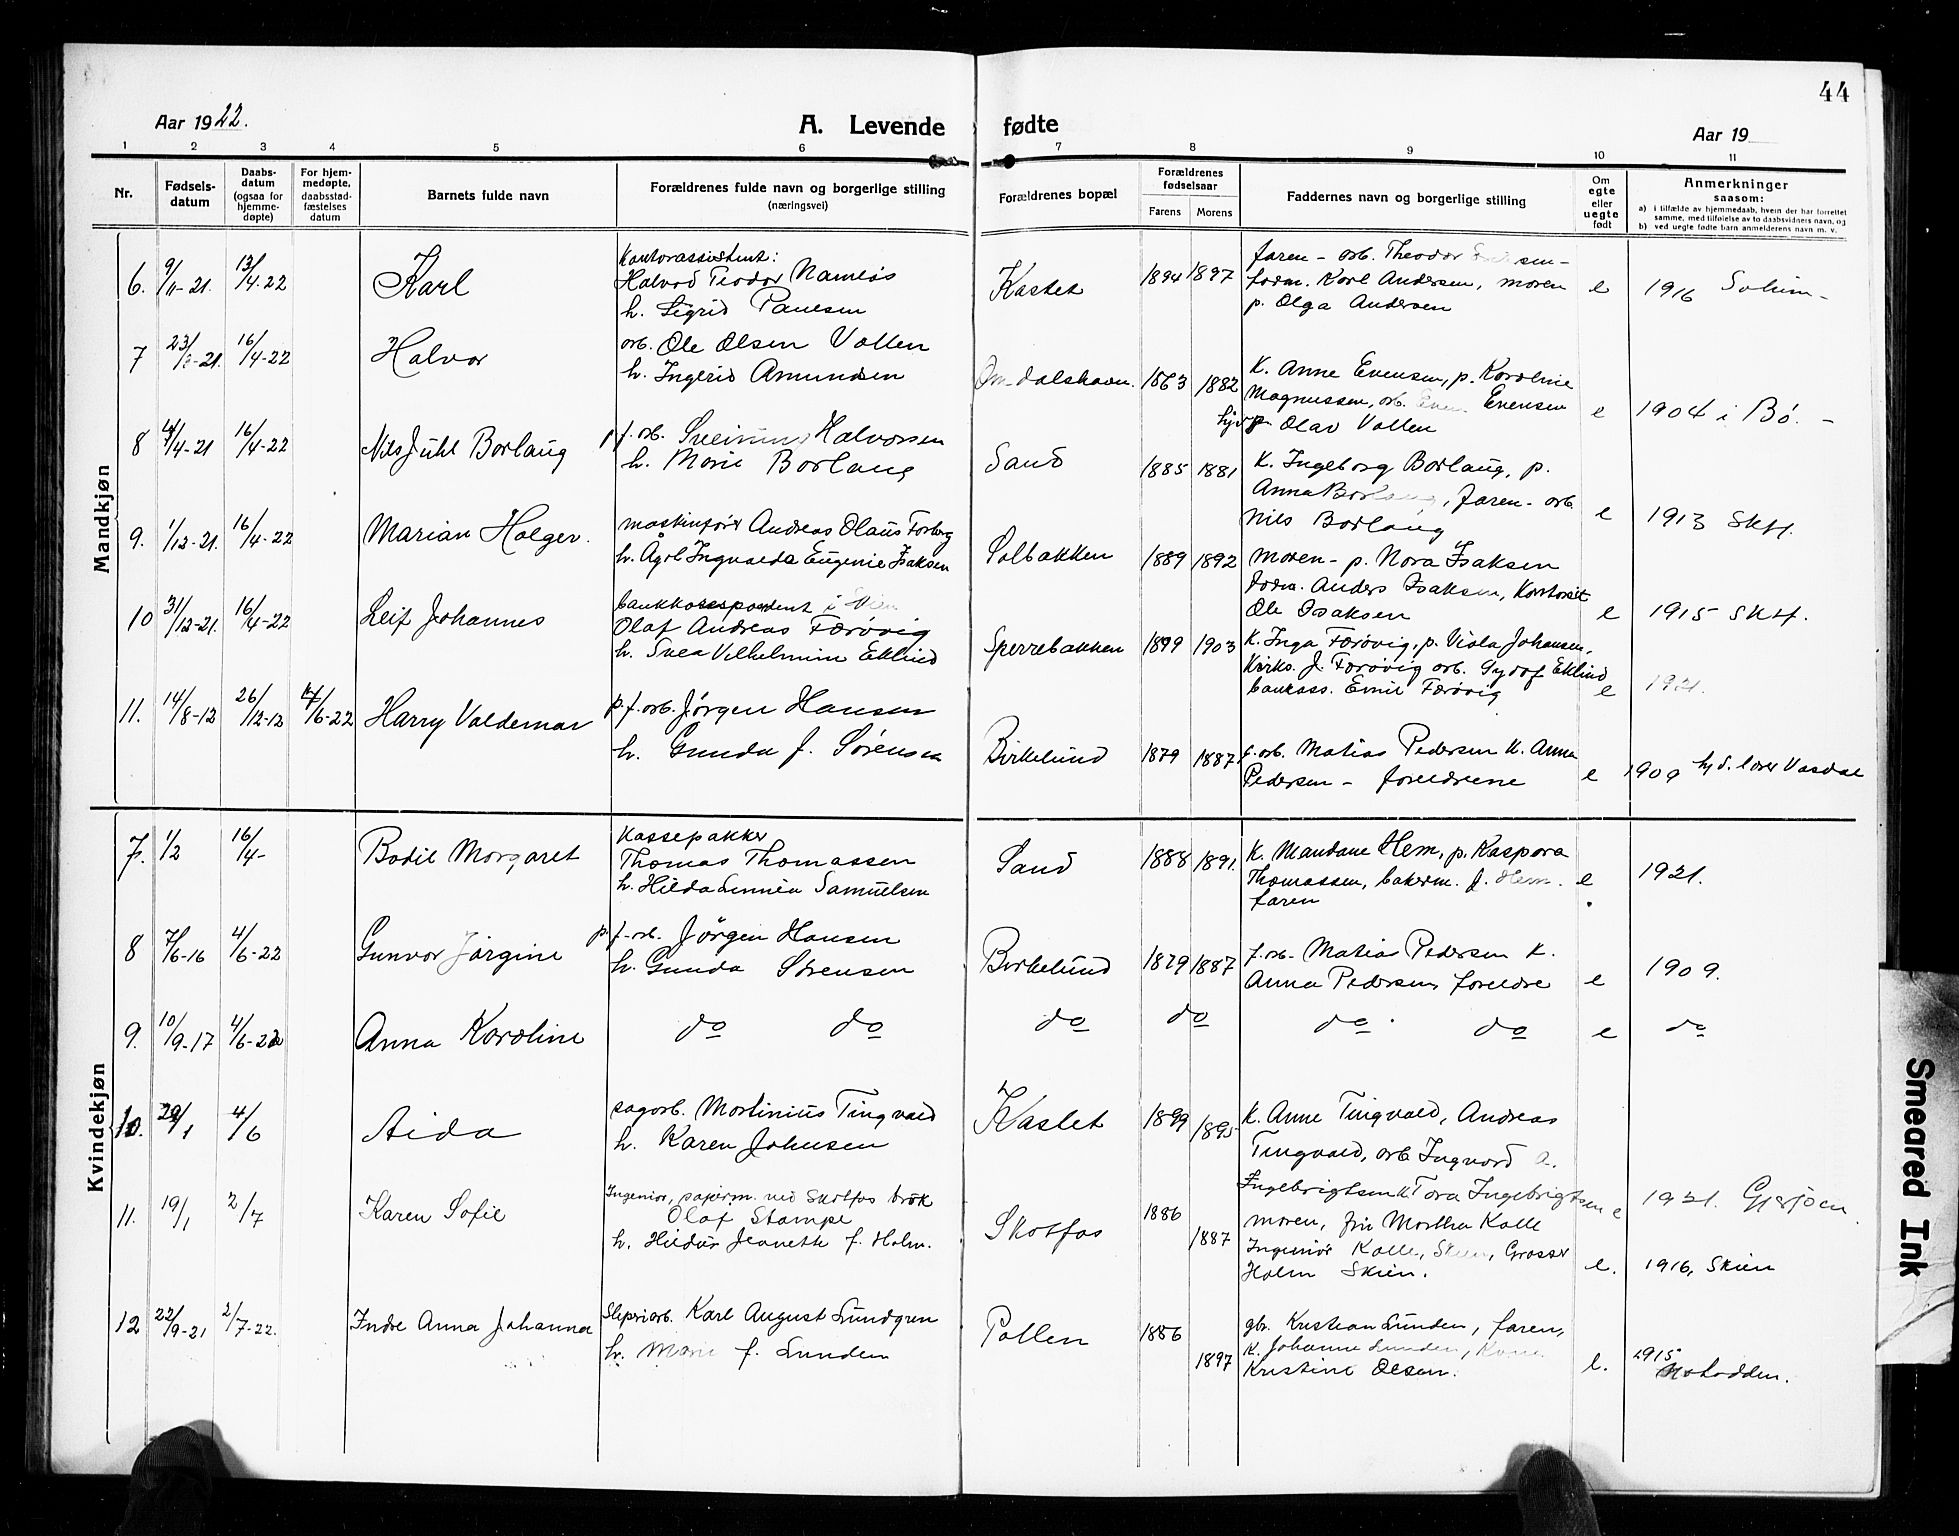 44
Aar 1922.
A. Levende fødte
Aar 19
1 2 3 4 5 6 7 8 9 10 11
Nr.
Fødsels-
datum
Daabs-
datum
(ogsaa for
hjemme-
døpte)
For hjem-
medøpte,
daabsstad-
fæstelses
datum
Barnets fulde navn
Forældrenes fulde navn og borgerlige stilling
(næringsvei)
Forældrenes bopæl
Forældrenes
fødselsaar
Farens Morens
Faddernes navn og borgerlige stilling
Om
egte
eller
uegte
født
Anmerkninger
saasom:
a) i tilfælde av hjemmedaab, hvem der har forrettet
samme, med tilføielse av to daabsvidners navn, og
b) ved uegte fødte barn anmelderens navn m. v.
Mandkjøn
6. 9/11-21. 13/4-22 Karl
Kontorassistent:
Halvod Teodor Namløs
h. Sigrid Paulsen
Kastet 1894 1897
faren - arb. Theodor
form. Karl Andersen, moren
p. Olga Andersen
e 1916 Solum -
7 16/4-22 Halvor
arb. Ole Olsen Vollen
h. Ingerid Amundsen
Omdalshavn. 1863 1882
K. Anne Evensen, p. Karoline
Magnussen, arb. Evensen
p. Olav Vollen
e 1904 i Bø. -
8 4/4-21 16/4-22 Nils Juhl Borlaug
f. arb. Halvorsen
h. Marie Borlaug
Sand 1885 1881
K. Ingeborg Borlaug, p.
Anna , faren - arb.
Nils Borlaug
e 1913 Sktf.
9. 1/12-21. 16/4-22 Marian Holger.
maskinfører Andreas Olaus Forberg
h. Ågot Ingvalda Eugenie Isaksen
Solbakken 1889 1892
moren - p. Nora Isaksen
form. Anders Isaksen, Kontorist
Ole Isaksen
e 1915 Sktf.
10 31/12-21. 16/4-22 Leif Johannes
bankkorespondent i
Olaf Andreas Færøvig
h. Svea Vilhelmine Eklund
Sperrebakken 1899 1903
K. Inga Færøvig, p. Viola Johansen,
Kirks. J. Færøvig arb. Gydof Eklund
bankass. Emil Færøvig
e 1921.
11. 14/8-12 26/12-12 4/6-22 Harry Valdemar
p. f. arb. Jørgen Hansen
h. Gunda f. Sørensen
Birkelund 1879 1887
f. arb. Matias Pedersen K. Anna
Pedersen - foreldrene
e 1909 hj d. lærer Vasdal
Kvindekjøn
7. 1/2 16/4- Bodil Margaret
Kassepakker
Thomas Thomassen
h. Hilda Linnea Samuelsen
Sand 1888 1891.
K. Mandane Hem, p. Kaspara
Thomassen, bakerm. J. Hem.
faren
e 1921.
8 7/6-16 4/6-22 Gunvor Jørgine
p. f. arb. Jörgen Hansen
h. Gunda Sørensen
Birkelund 1879 1887
f. arb. Matias Pedersen K.
Anna Pedersen, foreldre
e 1909.
9. 10/9-17 4/6-22 Anna Karoline
do do do do do do e do
10. 29/1 4/6 Aida
sagarb. Martinius Tingvald
h. Karen Johnsen
Kastet 1899 1895
K. Anne Tingvald, Andreas
Tingvald, arb Ingvard A.
Ingebrigtsen K. Tora Ingebrigtsen
e 1921. Gjersjøen
11. 19/1 2/7 Karen Sofie
Ingeniør, papirm. ved Skotfos bruk
Olaf Stampe
h. Hildur Jeanette f. Holm.
Skotfos 1886 1887
moren, fru Martha Kalle
Ingeniør Kalle, Skien, Grosser
Holm Skien.
e. 1916, Skien
12 22/9-21 2/7-22. Indre Anna Johanna
Sliperiarb. Karl August Lundgren
h. Marie f. Lunden
Pollen 1886 1897
gbr. Kristian Lunden, faren,
K. Johanne Lunden,
Kristine Olsen.
e. 1915 Notodden.
Smeared Ink